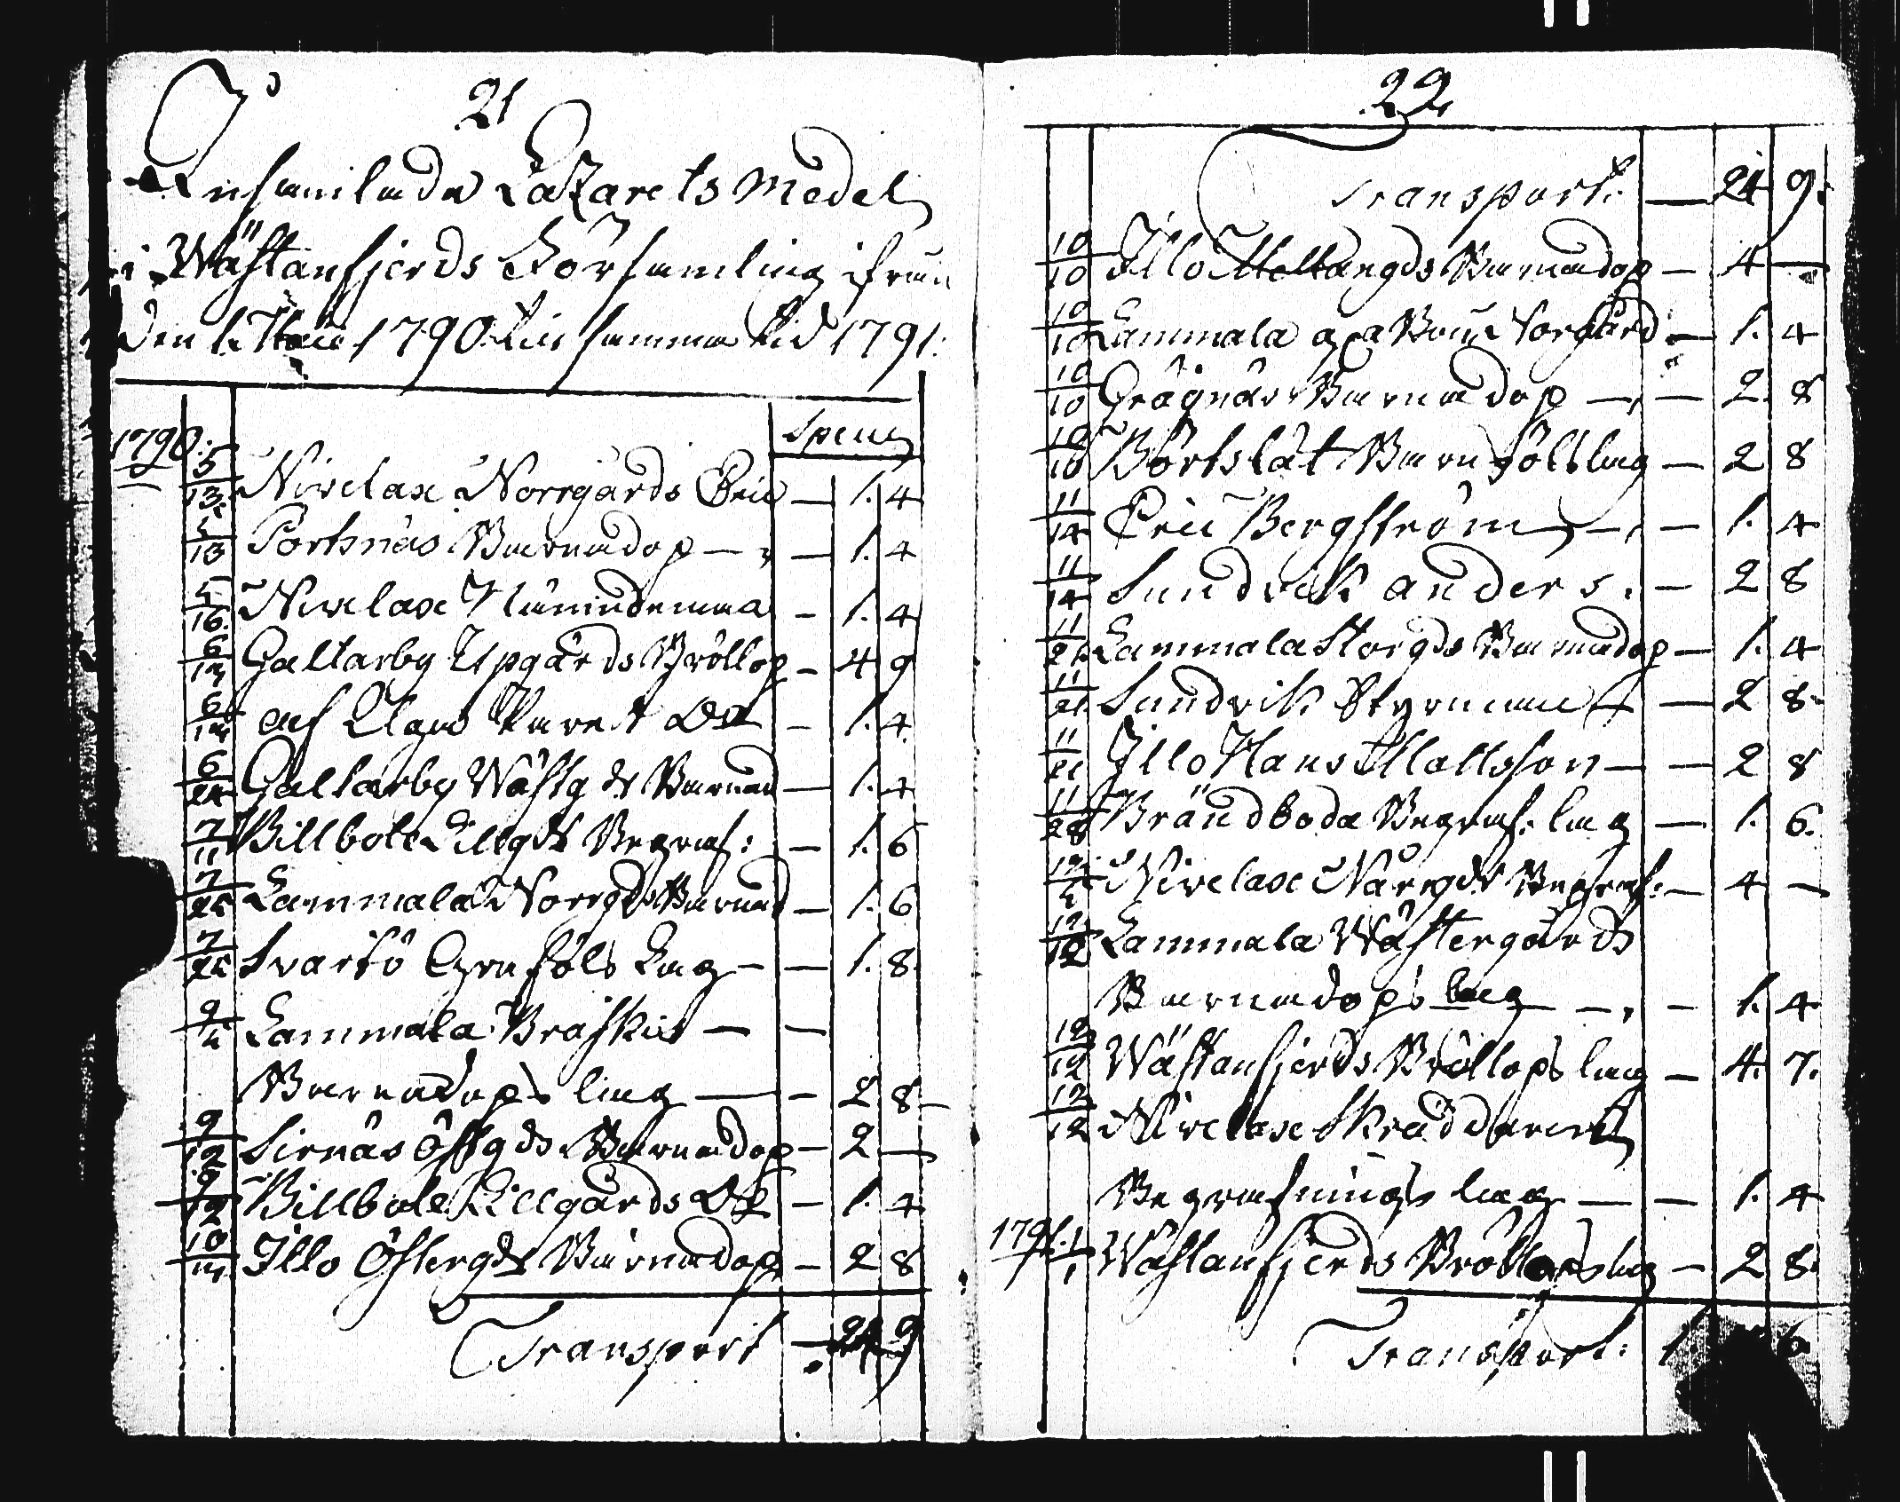 21
Insamlade Lazarets Medel
i Wästanfjerds Församling ifrån
den 1 Maii 1790 till samma tid 1791:
1790: Specie
5/13 Nivelax Norrgårds Eric — 1. 4
5/13 Pörtsnäs Barnadop — 1. 4
5/16 Nivelax — 1. 4
6/13 Galtarby Upgårds Bröllop — 4 9
af — 1. 4
6/24 Galtarby Wästgds Barnad — 1. 4
7/11 Billbole Lillgds Begraf: — 1. 6
7/25 Lammala Norrgds Barnad — 1. 6
7/25 Svartö Grafföls Lag — 1. 8
Lammala Bräskis —
Barnadops lag — 2 8
9/12 Sirnäs Östgds Barnadop — 2 —
9/12 Billbole Lillgårds — 1. 4
Illo Östergds Barnadop — 2 8
Transport — 24 9
22
Transport: — 24 9:
10/10 Illo Mellangds Barnadop — 4 —
10/10 Lammala Norgård — 1. 4
10/10 Grägnäs Barnadop — 2. 8
10/10 Börtslät Barnsölslag — 2 8
11/14 Eric Bergström — 1. 4
11/14 Sundvik Anders. — 2 8
11/21 Lammala Storgds Barnadop — 1. 4
11/21 Sundvik Styrman — 2 8
11/21 Illo Hans Mattsson — 2 8
11/28 Brändboda Begraf: lag — 1. 6.
Nivelax Närrgds Begraf: — 4 —
12/12 Lammala Wästergårds
Barnadops lag — 1. 4
12/12 Wästanfjerds Bröllops lag — 4. 7.
12/12 Nivelax Skräddarens
Begrafnings lag — 1. 4
1791: 1/1 Wästanfjerds Bröllopslag — 2 8.
Transport: 6